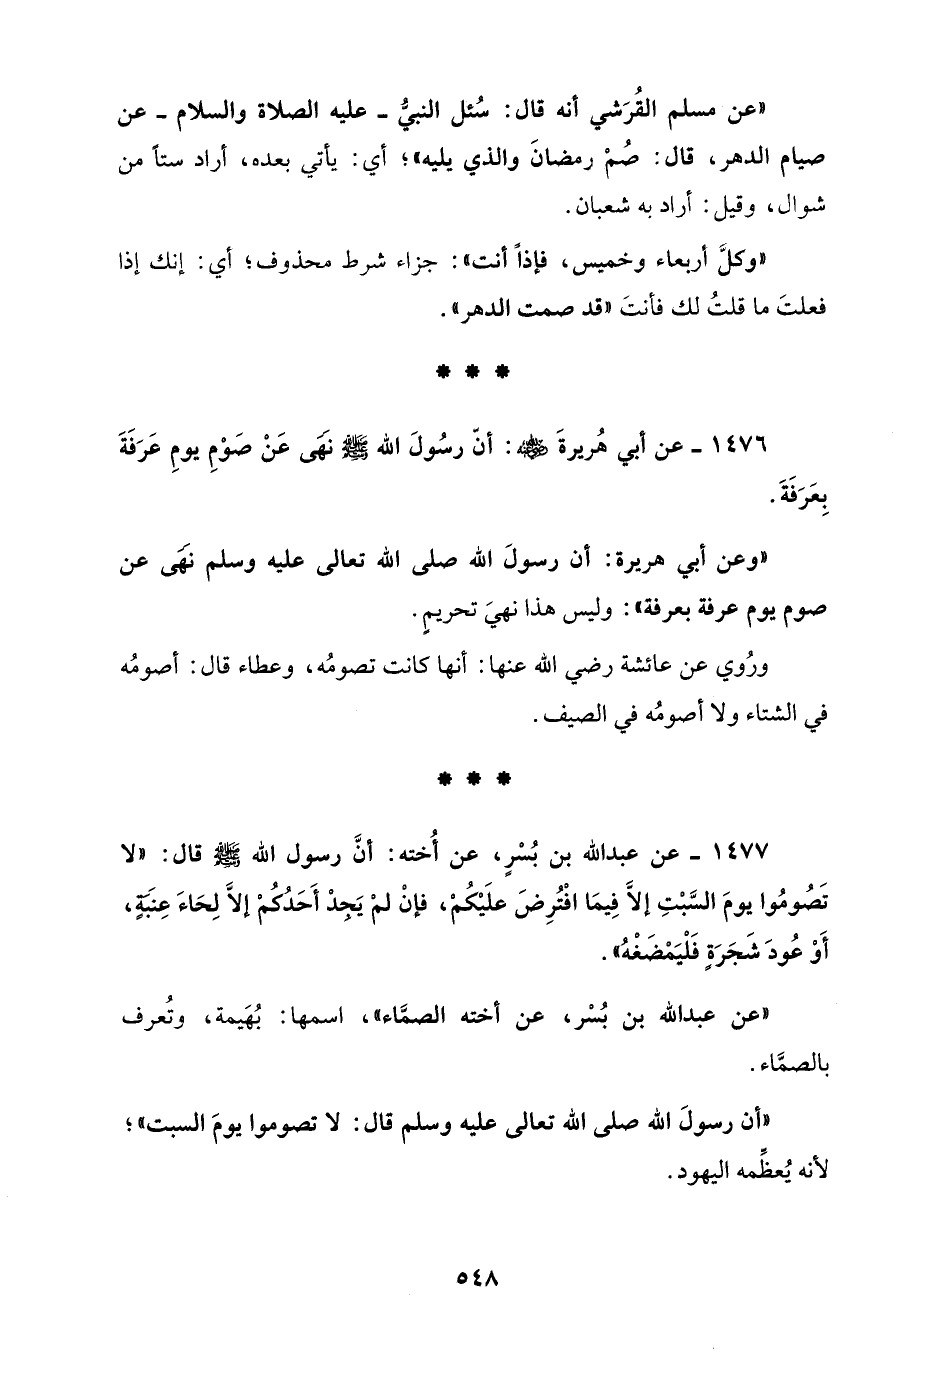 «عن مسلم القُرَشي أنه قال: سُئل النبيُّ ـ عليه الصلاة والسلام ـ عن
صيام الدهر، قال: صُمْ رمضانَ والذي يليه»؛ أي: يأتي بعده، أراد ستاً من
شوال، وقيل: أراد به شعبان.
«وكلَّ أربعاء وخميس، فإذاً أنت»: جزاء شرط محذوف؛ أي: إنك إذا
فعلتَ ما قلتُ لك فأنتَ «قد صمت الدهر».
* * *
١٤٧٦ ـ عن أبي هُريرةَ ﵁: أنّ رسُولَ الله ﷺ نهَى عَنْ صَوْمِ يومِ عَرَفَةَ
بِعَرَفَةَ.
«وعن أبي هريرة: أن رسولَ الله صلى الله تعالى عليه وسلم نهَى عن
صوم يوم عرفة بعرفة»: وليس هذا نهيَ تحريمٍ.
ورُوي عن عائشة رضي الله عنها: أنها كانت تصومُه، وعطاء قال: أصومُه
في الشتاء ولا أصومُه في الصيف.
* * *
١٤٧٧ ـ عن عبدالله بن بُسْرٍ، عن أُخته: أنَّ رسول الله ﷺ قال: «لا
تَصُومُوا يومَ السَّبْتِ إلاَّ فِيمَا افْتُرِضَ علَيْكُمْ، فإنْ لمْ يَجِدْ أَحَدُكُمْ إلاَّ لِحَاءَ عِنَبَةٍ،
أَوْ عُودَ شَجَرَةٍ فَلْيَمْضَغْهُ».
«عن عبدالله بن بُسْر، عن أخته الصمَّاء»، اسمها: بُهَيمة، وتُعرف
بالصمَّاء.
«أن رسولَ الله صلى الله تعالى عليه وسلم قال: لا تصوموا يومَ السبت»؛
لأنه يُعظِّمه اليهود.
٥٤٨